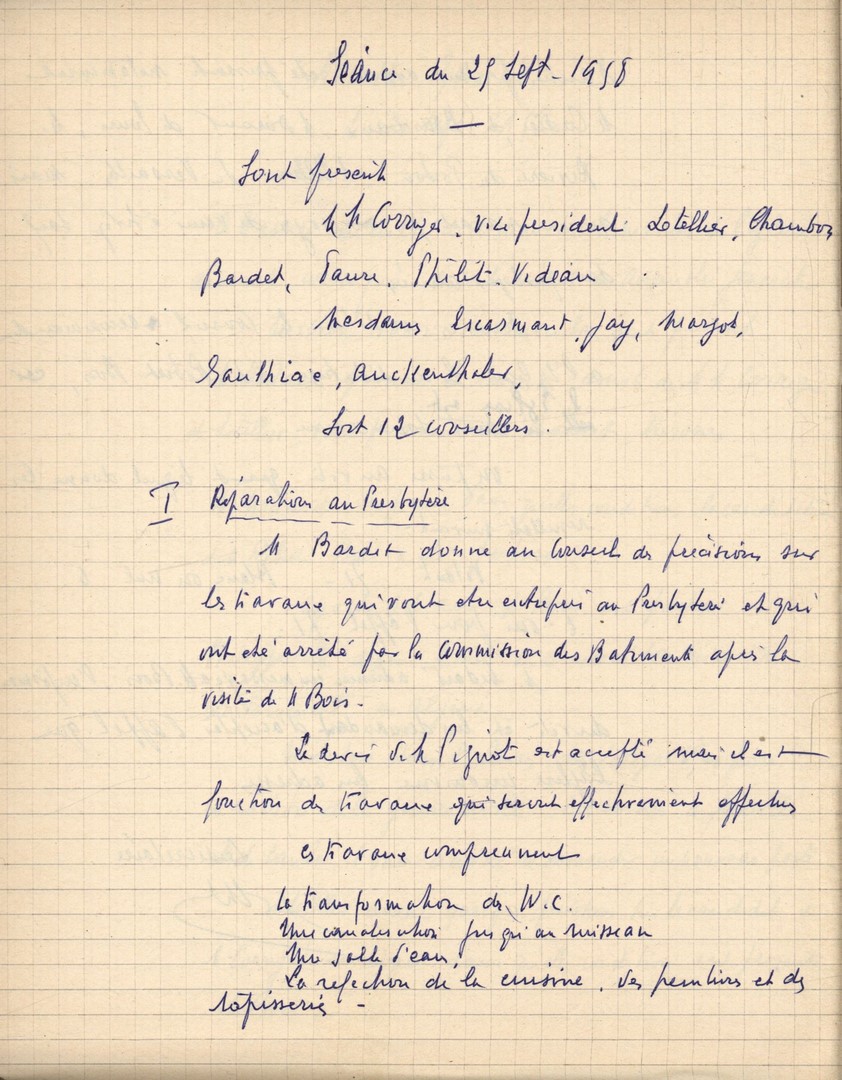 Séance du 25 Sept - 1958
Sont présents
MM Corruger, vice président Letellier, Chambon
Bardet, Faure, Philit, Videau
Mesdames Escarmant, Jay, Margot,
Gauthiae, Auckenthaler,
Soit 12 conseillers.
I Réparations au Presbytère
M Bardet donne au Conseil des précisions sur
les travaux qui vont être entrepris au Presbytère et qui
ont été arrêtés par la Commission des Batiments après la
visite de M Bois.
Le devis de M Pignot est accepté mais il est
fonction des travaux qui seront effectivement effectués
Ces travaux comprennent
la transformation des W.C.
Une canalisation jusqu'au ruisseau
Une salle d'eau,
La réfection de la cuisine, des peintures et des
tapisseries -